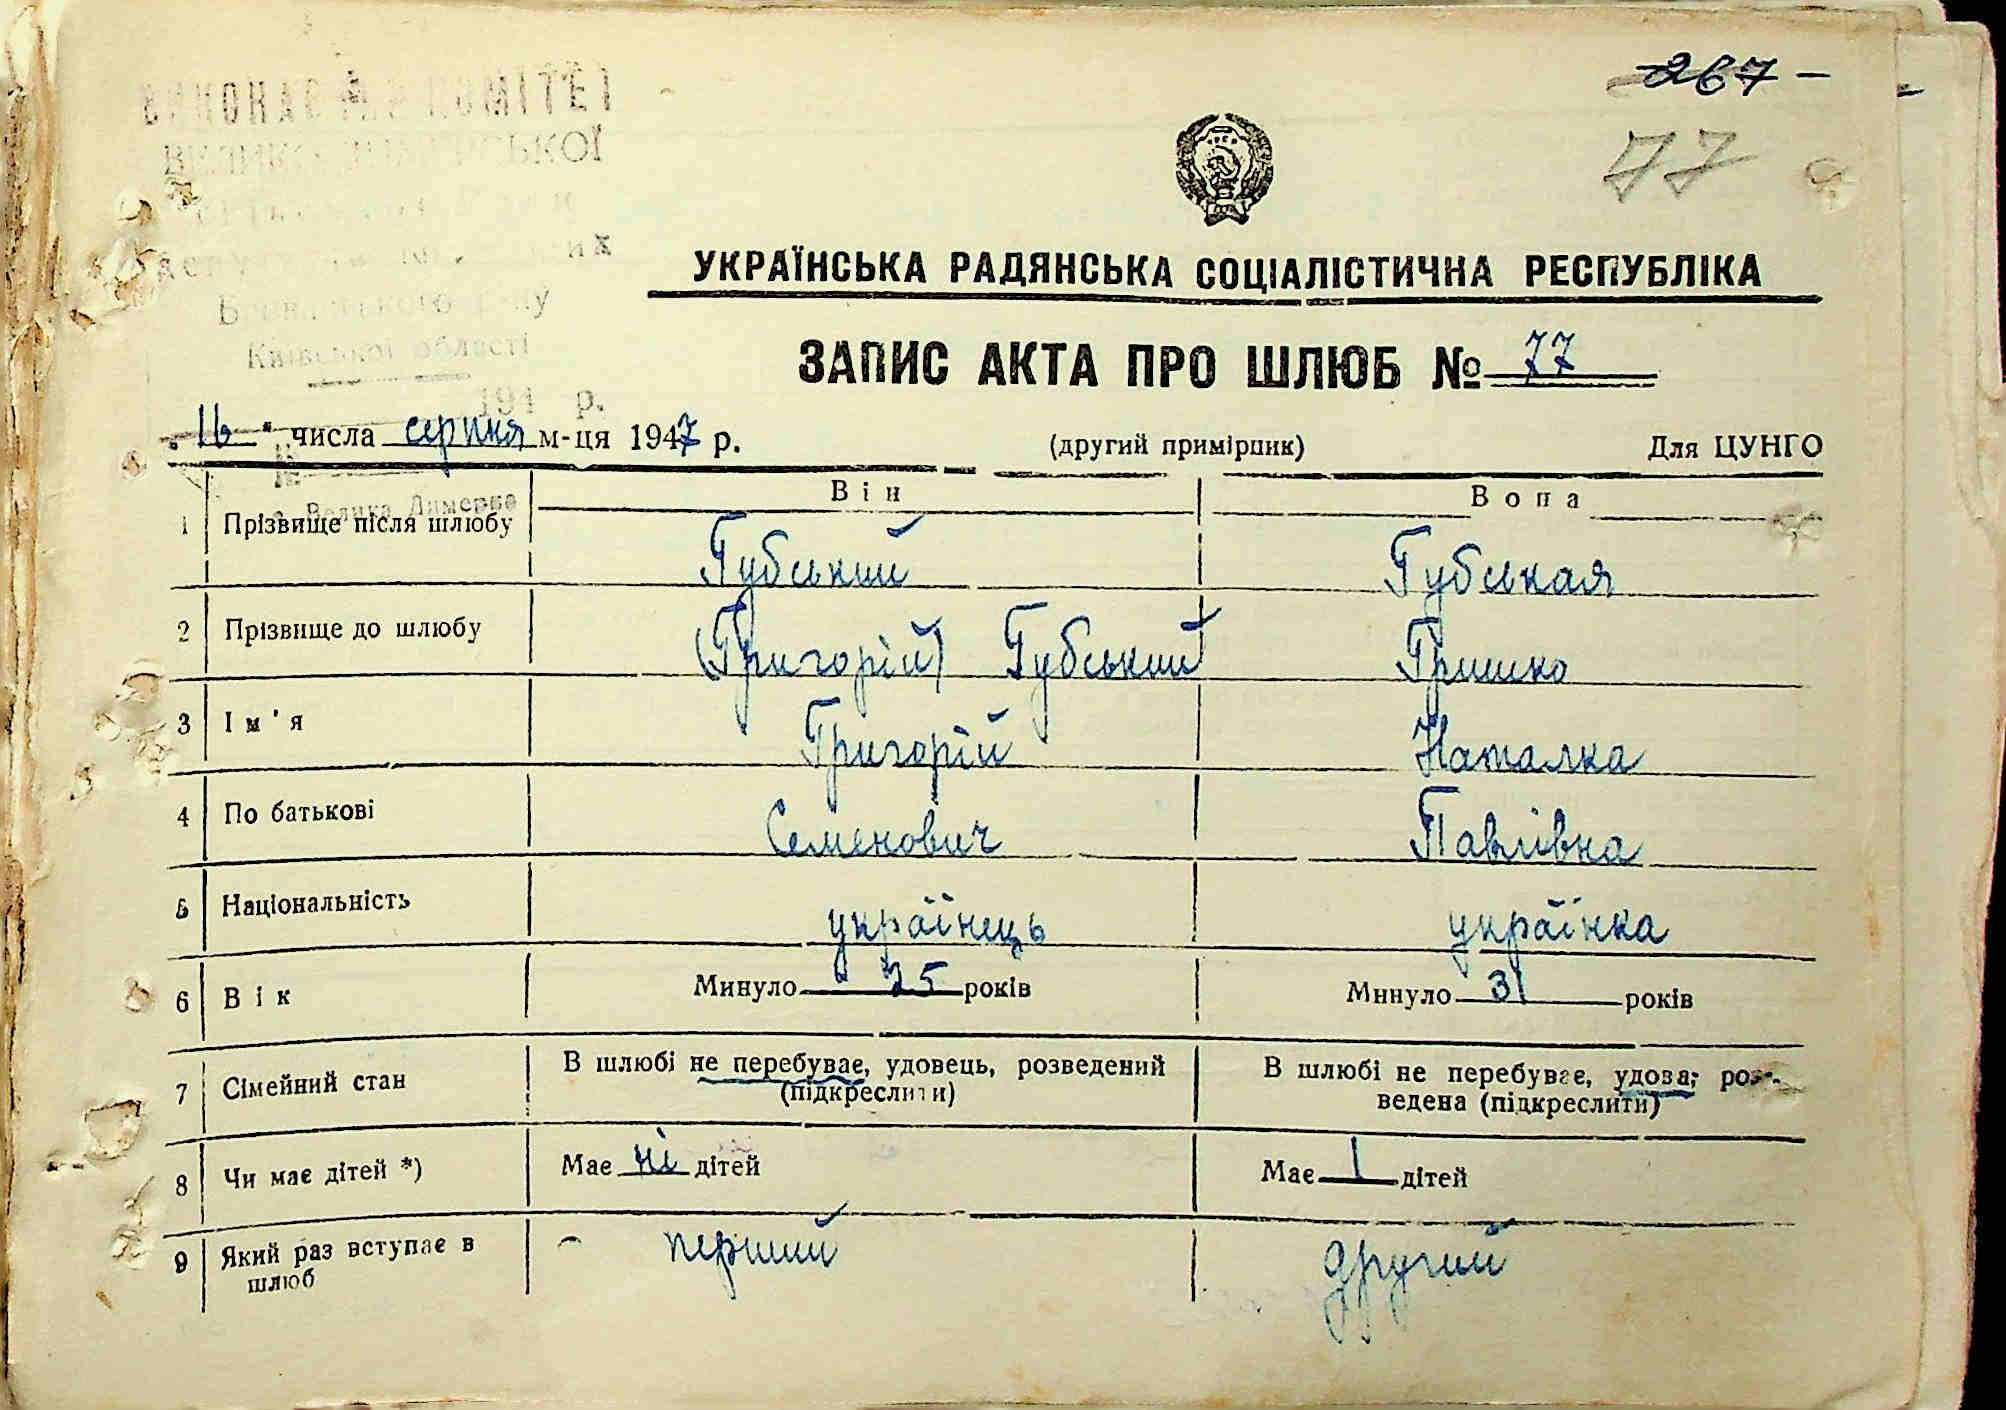 -267-
77
ВИКОНАВЧИЙ КОМІТЕТ
ВЕЛИКО-ДИМЕРСЬКОЇ
Броварського р-ну
Київської області
194 р.
УКРАЇНСЬКА РАДЯНСЬКА СОЦІАЛІСТИЧНА РЕСПУБЛІКА
ЗАПИС АКТА ПРО ШЛЮБ № 77
„16" числа серпня м-ця 1947 р. (другий примірник) Для ЦУНГО
№
с. Велика Димерка
Він Вона
1 Прізвище після шлюбу Губський Губськая
2 Прізвище до шлюбу (Григорій) Губський Гришко
3 Ім'я Григорій Наталка
4 По батькові Семенович Павлівна
5 Національність українець українка
6 Вік Минуло 25 років Минуло 31 років
7 Сімейний стан В шлюбі не перебуває, удовець, розведений (підкреслити) В шлюбі не перебуває, удова, роз-
ведена (підкреслити)
8 Чи має дітей *) Має ні дітей Має 1 дітей
9 Який раз вступає в шлюб - перший другий